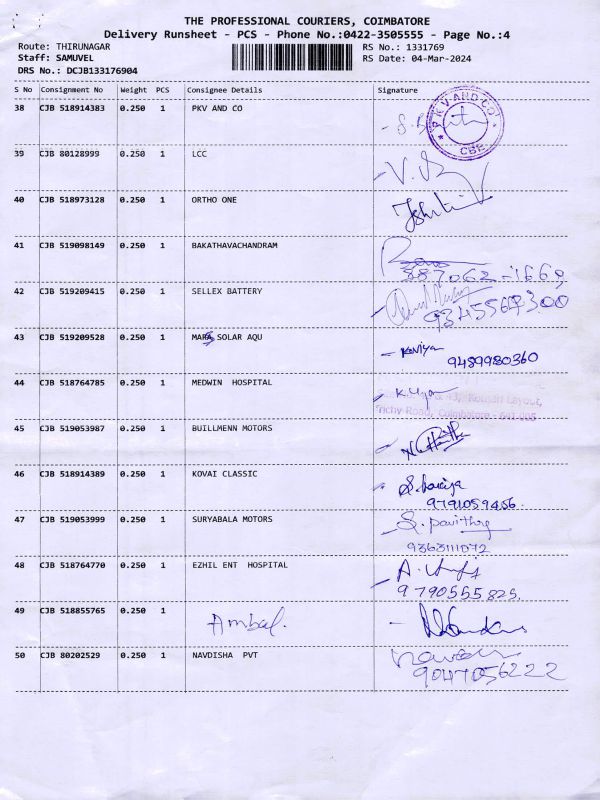 THE PROFESSIONAL COURIERS, COIMBATORE
Delivery Runsheet - PCS - Phone No.:0422-3505555 - Page No.:4
Route: THIRUNAGAR RS No.: 1331769
Staff: SAMUVEL RS Date: 04-Mar-2024
DRS No.: DCJB133176904
S No Consignment No Weight PCS Consignee Details Signature
38 CJB 518914383 0.250 1 PKV AND CO
PKV AND CO
CBE
39 CJB 80128999 0.250 1 LCC
40 CJB 518973128 0.250 1 ORTHO ONE
41 CJB 519098149 0.250 1 BAKATHAVACHANDRAM
42 CJB 519209415 0.250 1 SELLEX BATTERY
43 CJB 519209528 0.250 1 SOLAR AQU Kaviya
9489980360
44 CJB 518764785 0.250 1 MEDWIN HOSPITAL
Trichy Road, Coimbatore - 641 005
45 CJB 519053987 0.250 1 BUILLMENN MOTORS
46 CJB 518914389 0.250 1 KOVAI CLASSIC
9791059456
47 CJB 519053999 0.250 1 SURYABALA MOTORS S. Pavithra
9363111072
48 CJB 518764770 0.250 1 EZHIL ENT HOSPITAL
9790555825.
49 CJB 518855765 0.250 1 Ambal.
50 CJB 80202529 0.250 1 NAVDISHA PVT
9047056222